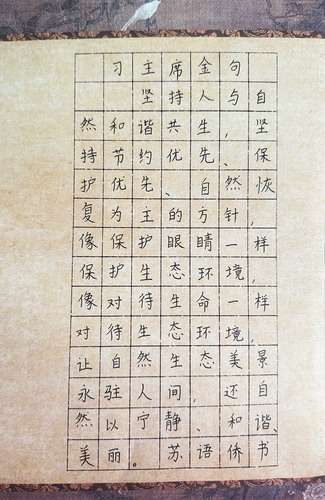 习主席金句
坚持人与自
然和谐共生,坚
持节约优先、保
护优先、自然恢
复为主的方针,
像保护眼睛一样
保护生态环境,
像对待生命一样
对待生态环境,
让自然生态美景
永驻人间,还自
然以宁静、和谐、
美丽。苏语侨书